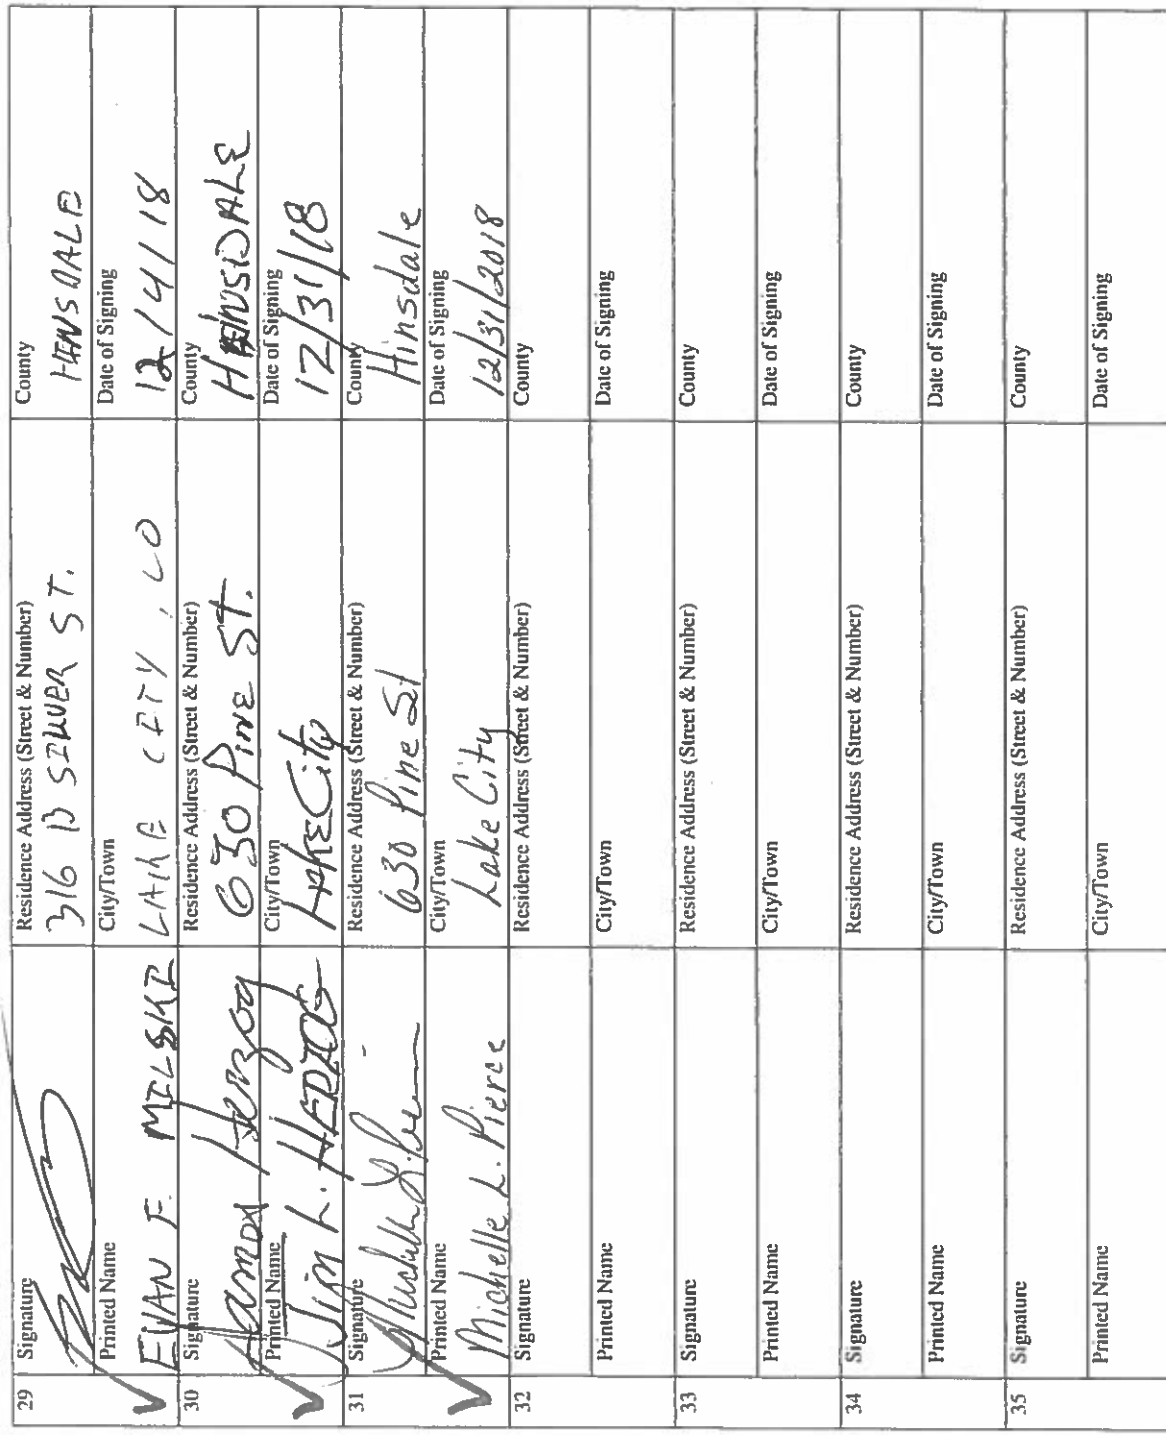 29
Signature
Residence Address (Street & Number)
316 B SILVER ST.
County
HINSDALE
Printed Name
EVAN F. MILSKI
City/Town
LAKE CITY, CO
Date of Signing
12/4/18
30
Signature
Herzog
Residence Address (Street & Number)
630 PINE ST.
County
HINSDALE
Printed Name
Jim L. HERZOG
City/Town
LAKE City
Date of Signing
12/31/18
31
Signature
Michelle L. Pierce
Residence Address (Street & Number)
630 Pine St
County
Hinsdale
Printed Name
Michelle L. Pierce
City/Town
Lake City
Date of Signing
12/31/2018
32
Signature
Residence Address (Street & Number)
County
Printed Name
City/Town
Date of Signing
33
Signature
Residence Address (Street & Number)
County
Printed Name
City/Town
Date of Signing
34
Signature
Residence Address (Street & Number)
County
Printed Name
City/Town
Date of Signing
35
Signature
Residence Address (Street & Number)
County
Printed Name
City/Town
Date of Signing